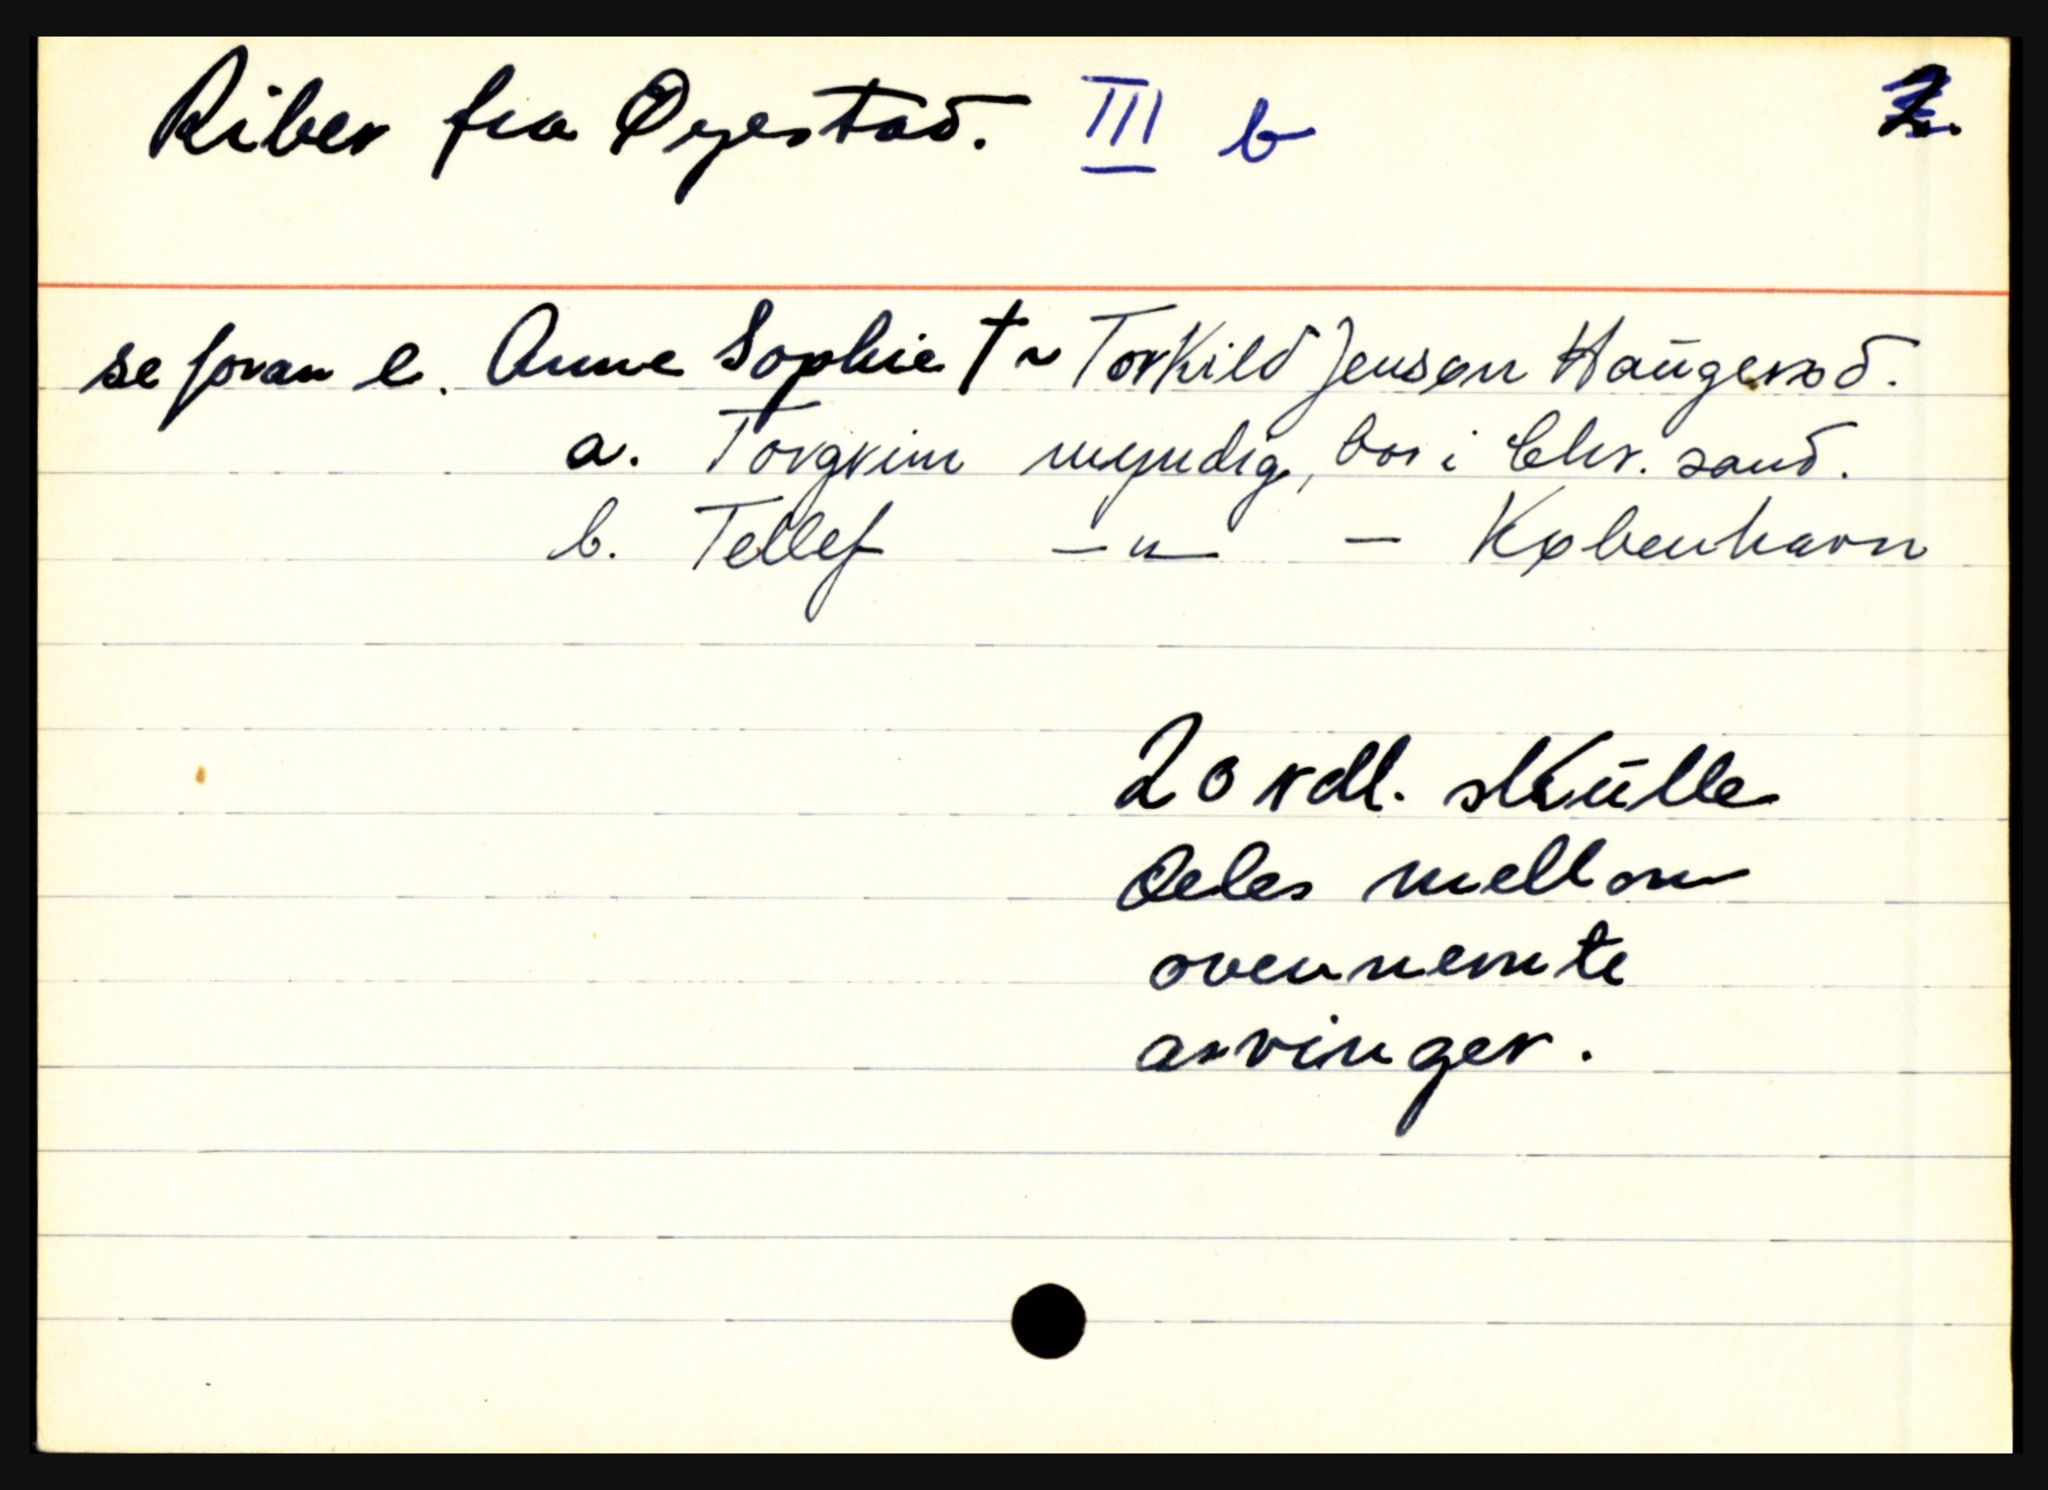 Riber fra Øyestad. III b 2.
se foran e. Anne Sophie † ~ Torkild Jensen Haugerød.
a. Torgrim myndig, bor i Chr. sand.
b. Tellef — " — — København
20 rdl. skulle
deles mellom
ovennemte
arvinger.